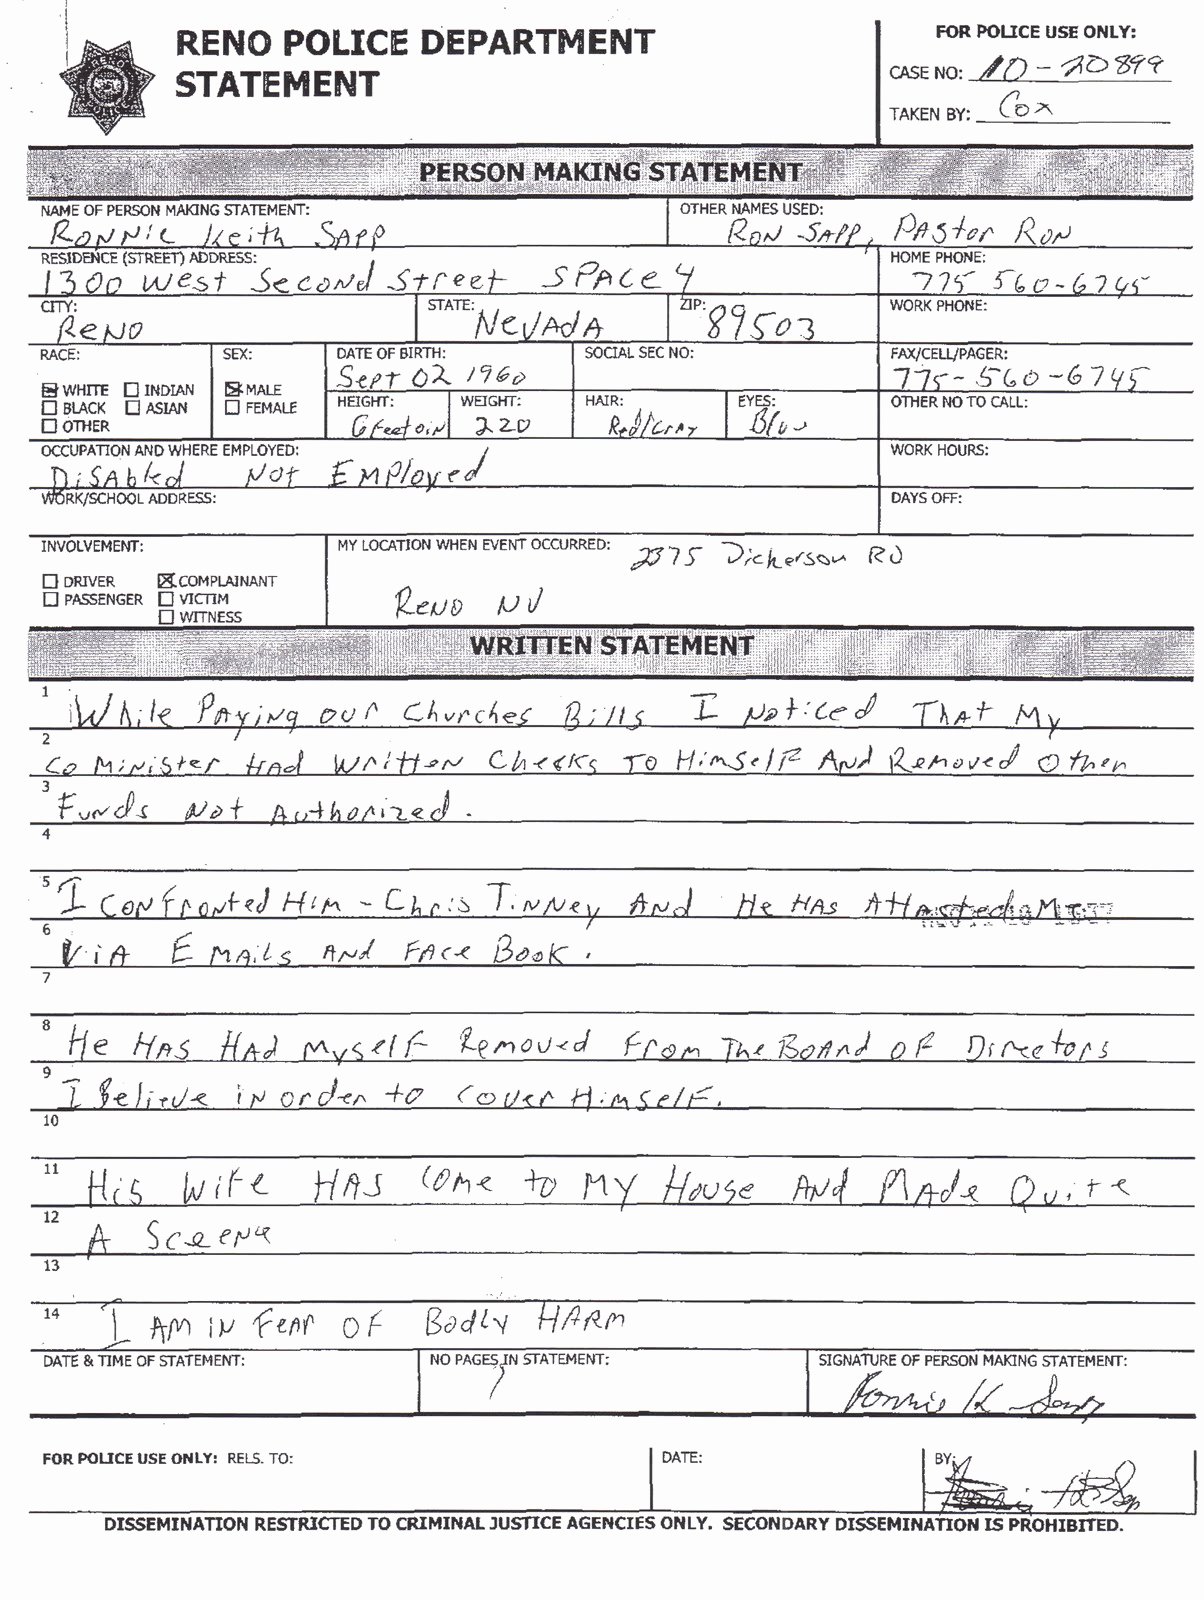 RENO POLICE DEPARTMENT
STATEMENT
FOR POLICE USE ONLY:
CASE NO: 10-20899
TAKEN BY: Cox
PERSON MAKING STATEMENT
NAME OF PERSON MAKING STATEMENT:
RONNIE Keith SAPP
OTHER NAMES USED:
RON SAPP, PAStor RON
RESIDENCE (STREET) ADDRESS:
1300 West Second Street SPACe 4
HOME PHONE:
775 560-6745
CITY:
ReNO
STATE:
NevADA
ZIP:
89503
WORK PHONE:
RACE:
WHITE INDIAN
BLACK ASIAN
OTHER
SEX:
MALE
FEMALE
DATE OF BIRTH:
Sept 02 1960
SOCIAL SEC NO:
FAX/CELL/PAGER:
775-560-6745
HEIGHT:
6 Feet 0 iN
WEIGHT:
220
HAIR:
Red/Gray
EYES:
Blue
OTHER NO TO CALL:
OCCUPATION AND WHERE EMPLOYED:
DiSAbled Not EMPloyed
WORK HOURS:
WORK/SCHOOL ADDRESS:
DAYS OFF:
INVOLVEMENT:
DRIVER COMPLAINANT
PASSENGER VICTIM
WITNESS
MY LOCATION WHEN EVENT OCCURRED:
2375 Dickerson RD
ReNO NV
WRITTEN STATEMENT
1 While PAying our Churches Bills I Noticed THAT My
2 Co MiNister HAD written Checks TO HimselF AND Removed Other
3 Funds Not Authorized.
4
5 I CONFronted HIM - Chris TiNNey AND He HAS
6 ViA E MAils AND FAce Book.
7
8 He HAS HAd MyselF Removed From The BoArd OF Directors
9 I Believe iN order to Cover HimselF.
10
11 His WiFe HAS Come to My House AND MAde Quite
12 A Sceene
13
14 I AM iN FeAr OF Bodly HARM
DATE & TIME OF STATEMENT:
NO PAGES IN STATEMENT:
SIGNATURE OF PERSON MAKING STATEMENT:
Ronnie K Sapp
FOR POLICE USE ONLY: RELS. TO:
DATE:
BY:
DISSEMINATION RESTRICTED TO CRIMINAL JUSTICE AGENCIES ONLY. SECONDARY DISSEMINATION IS PROHIBITED.